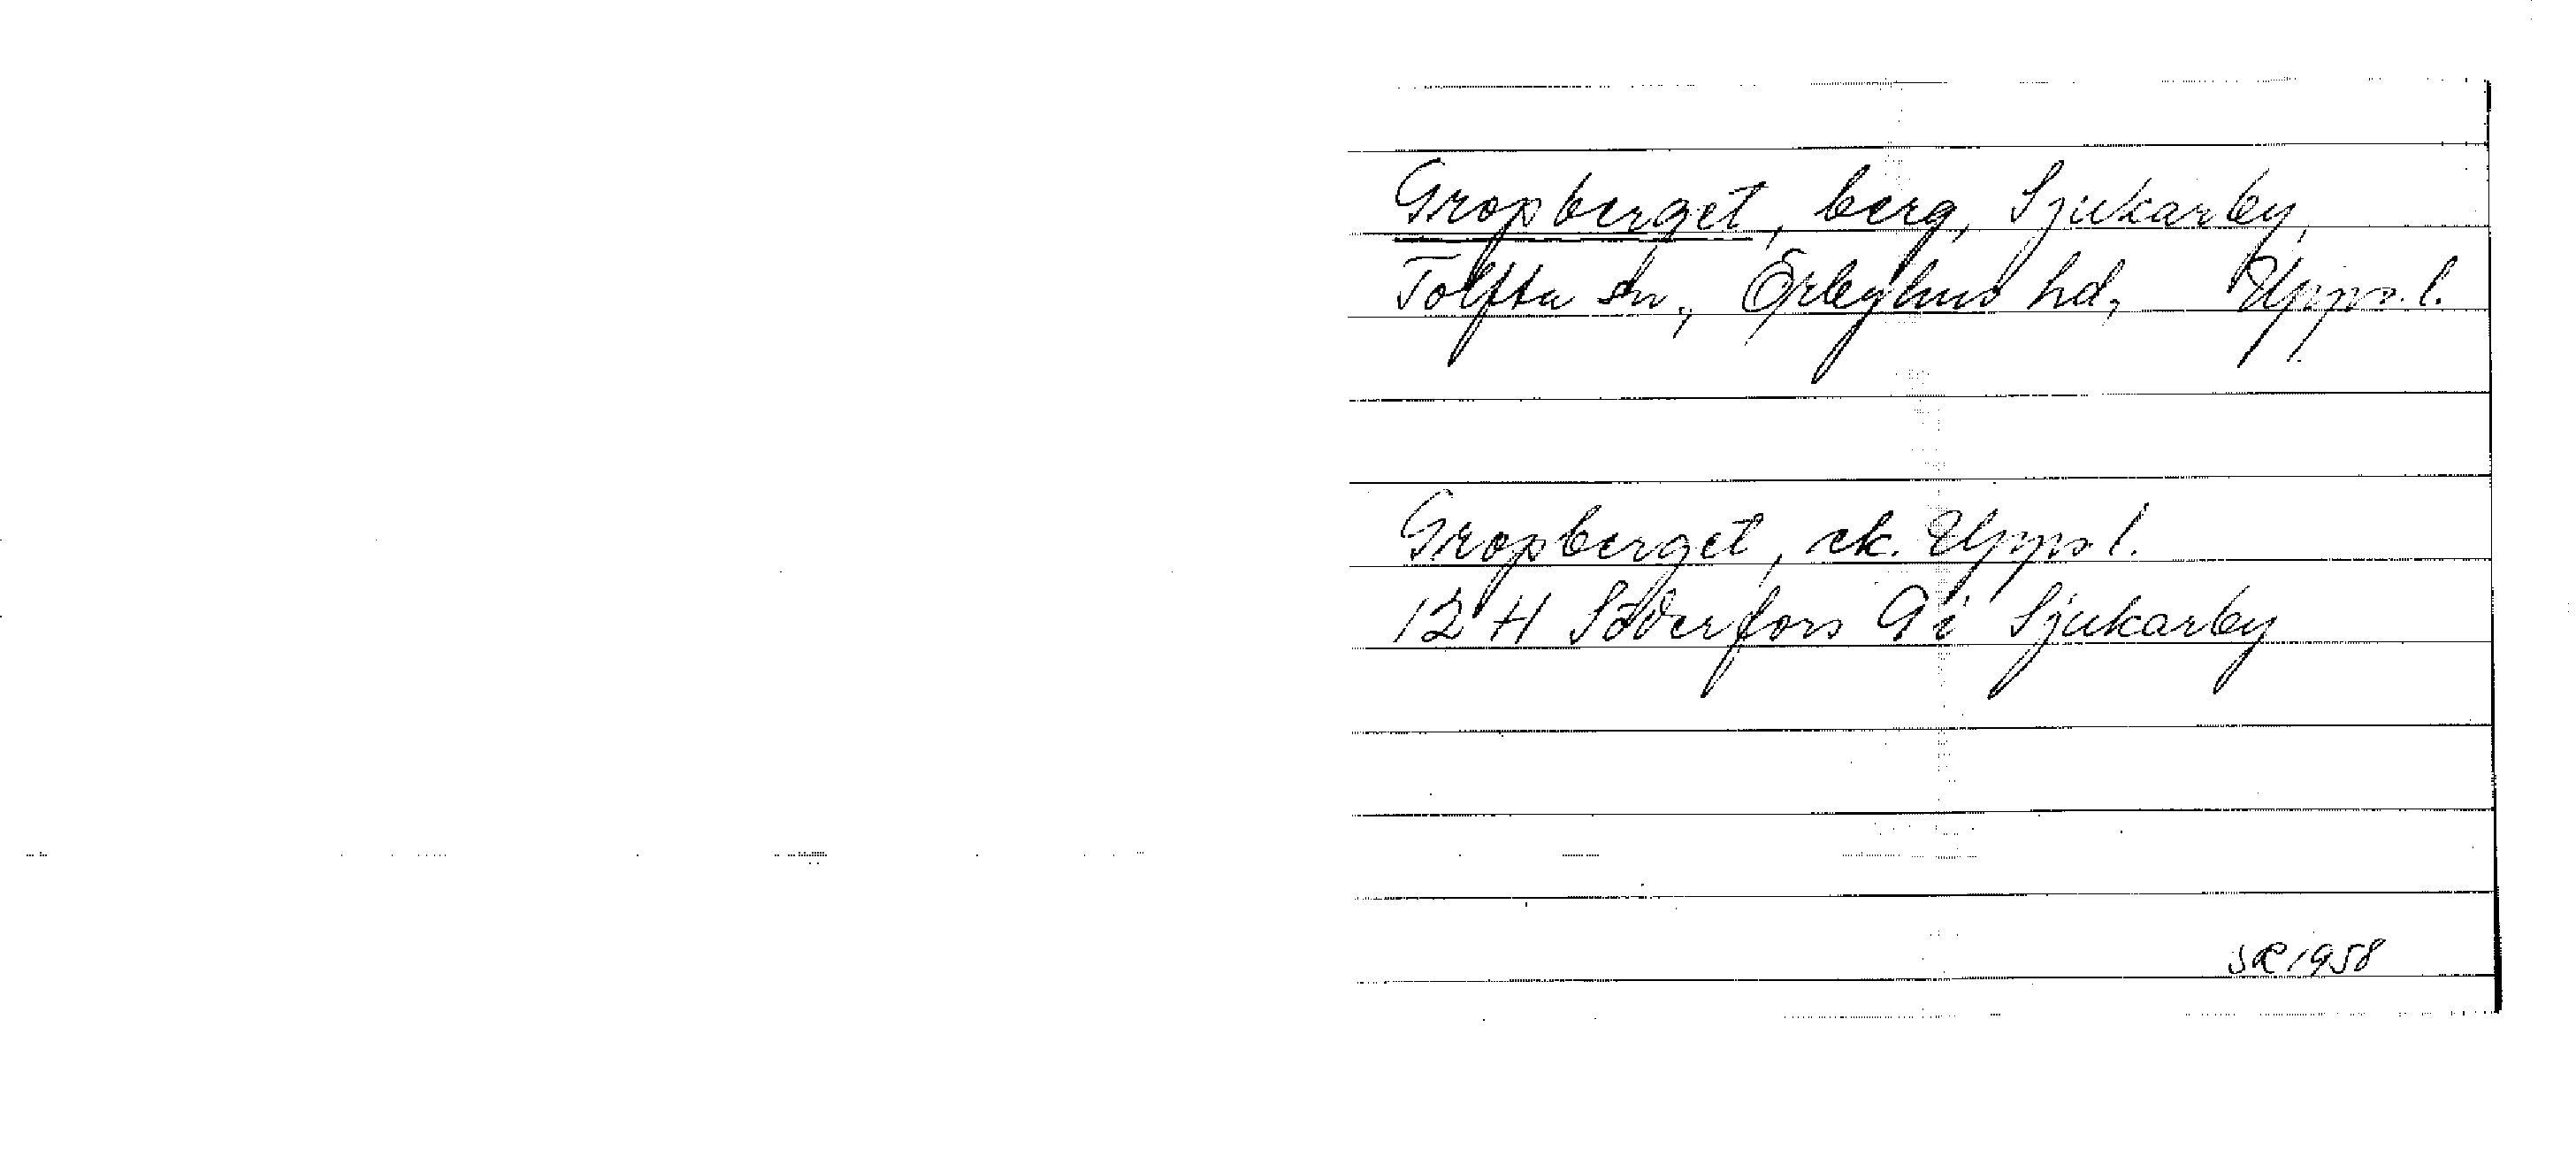 Gropberget, berg, Sjukarby,
Tolfta sn., Örbyhus hd, Upps. l.
Gropberget, ek. Upps l.
12 H Söderfors 9 i Sjukarby
SR 1958